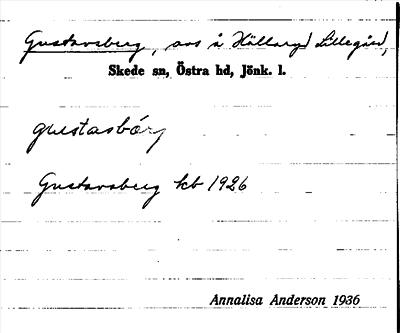 Gustavsberg, avs å Hållaryd Lillegård,
Skede sn, Östra hd, Jönk. l.
gustasbárj
Gustavsberg kb 1926
Annalisa Anderson 1936